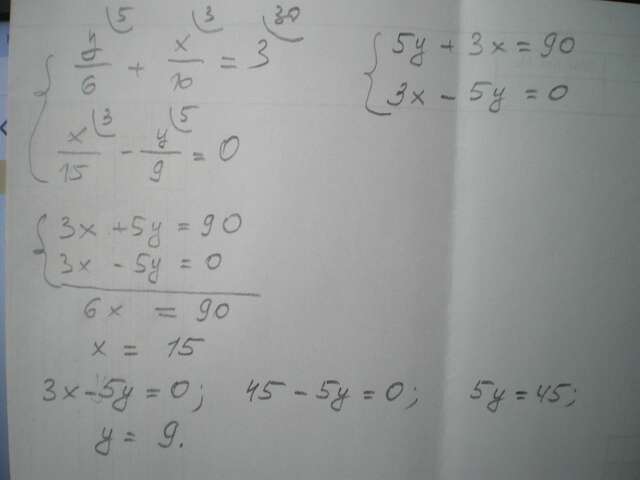 y/6 (5 + x/10 (3 = 3 (30
x/15 (3 - y/9 (5 = 0
5y + 3x = 90
3x - 5y = 0
3x + 5y = 90
3x - 5y = 0
6x = 90
x = 15
3x - 5y = 0; 45 - 5y = 0; 5y = 45;
y = 9.